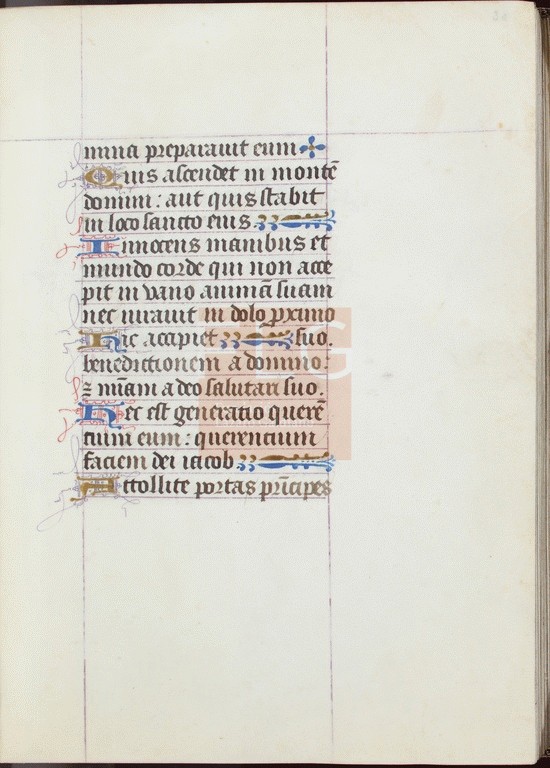 mina preparavit eum
Quis ascendet in montē
domini : aut quis stabit
in loco sancto eius.
Innocens manibus et
mundo corde qui non acce
pit in vano animā suam
nec iuravit in dolo ꝓximo
hic accipiet suo.
benedictionem a domino :
⁊ miām a deo salutari suo.
Hec est generatio querē
cium eum : querencium
faciem dei iacob.
Attollite portas prīcipes